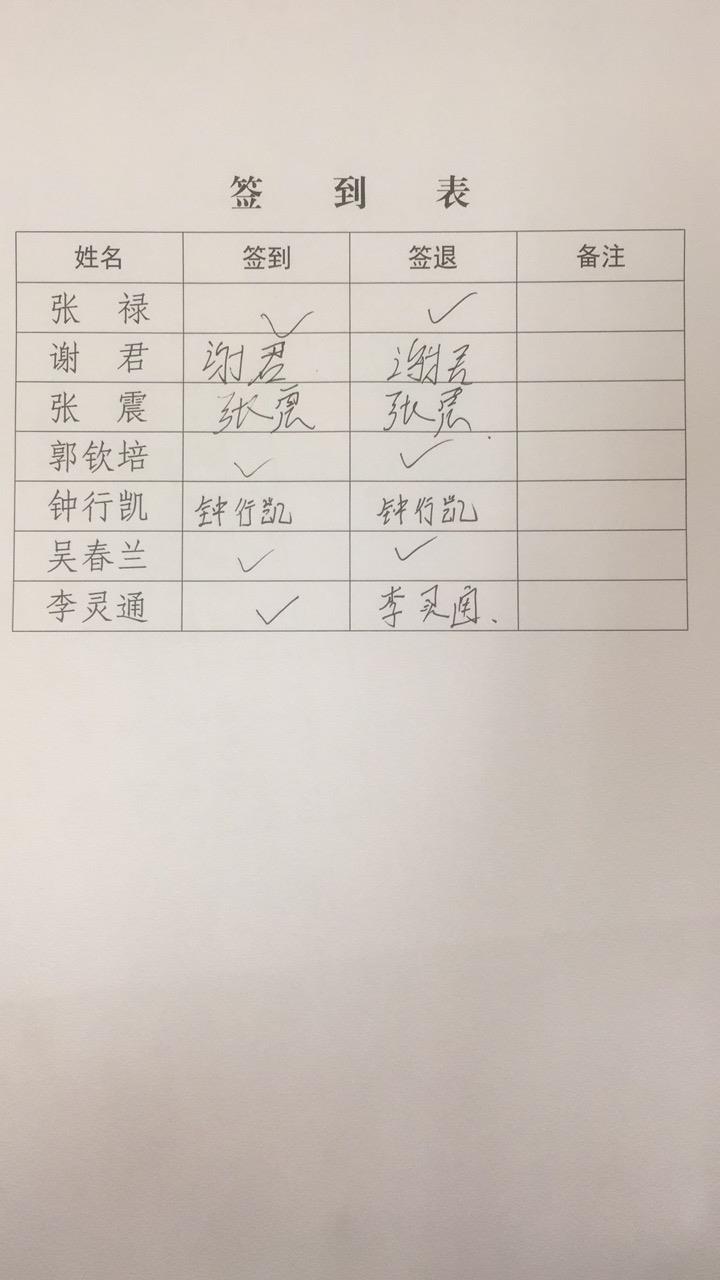 签 到 表
姓名 签到 签退 备注
张 禄 ✓ ✓
谢 君 谢君 谢君
张 震 张震 张震
郭钦培 ✓ ✓
钟行凯 钟行凯 钟行凯
吴春兰 ✓ ✓
李灵通 ✓ 李灵通